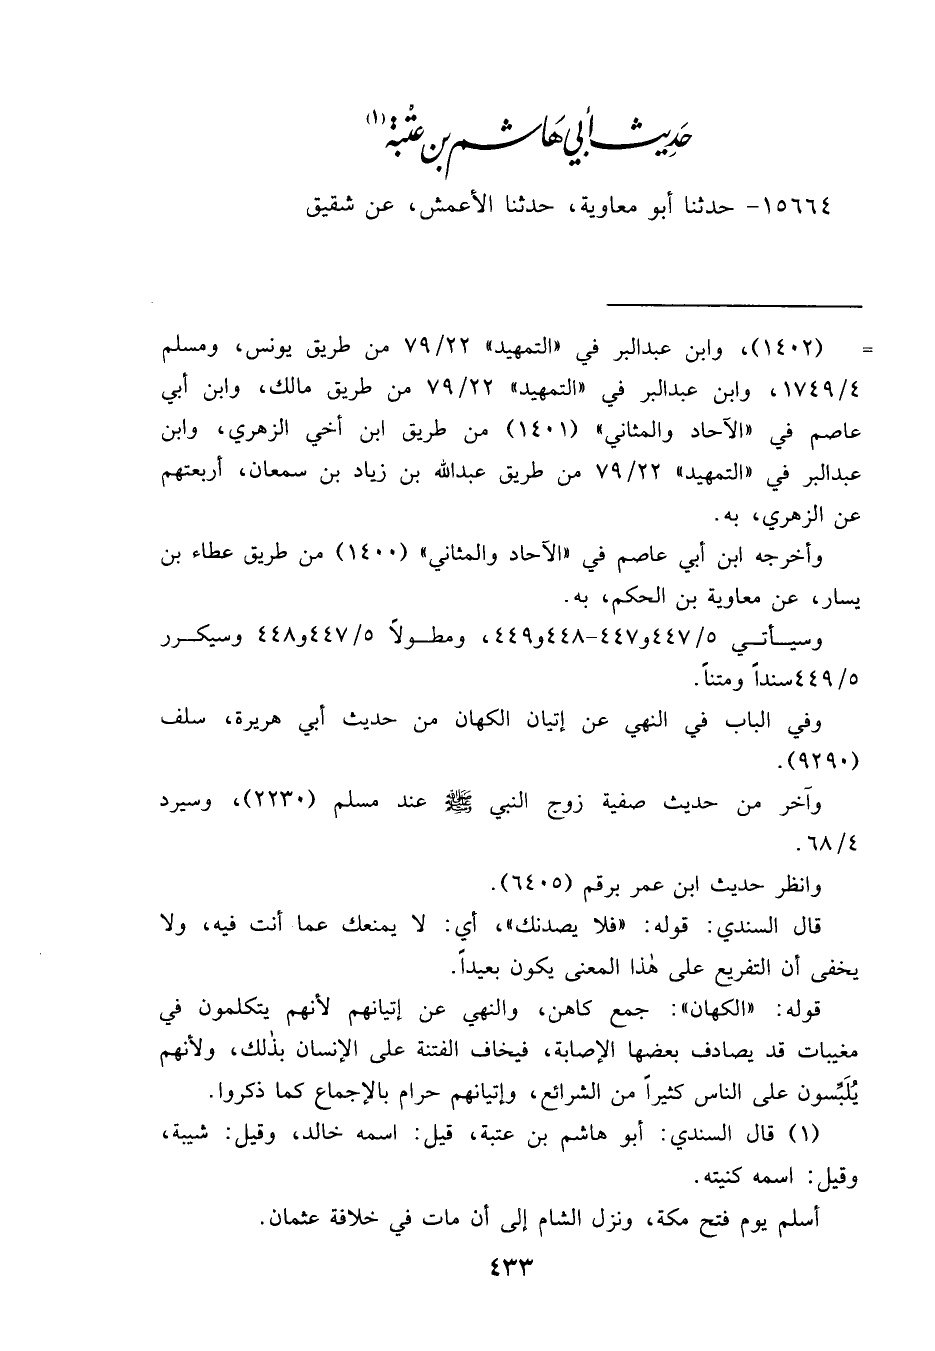 حَدِيث أَبي هَاشِم بن عُتْبة (١)
١٥٦٦٤- حدثنا أبو معاوية، حدثنا الأعمش، عن شقيق
= (١٤٠٢)، وابن عبدالبر في «التمهيد» ٧٩/٢٢ من طريق يونس، ومسلم
١٧٤٩/٤، وابن عبدالبر في «التمهيد» ٧٩/٢٢ من طريق مالك، وابن أبي
عاصم في «الآحاد والمثاني» (١٤٠١) من طريق ابن أخي الزهري، وابن
عبدالبر في «التمهيد» ٧٩/٢٢ من طريق عبدالله بن زياد بن سمعان، أربعتهم
عن الزهري، به.
وأخرجه ابن أبي عاصم في «الآحاد والمثاني» (١٤٠٠) من طريق عطاء بن
يسار، عن معاوية بن الحكم، به.
وسيـأتـي ٤٤٧/٥ و٤٤٧-٤٤٨ و٤٤٩، ومطـولاً ٤٤٧/٥ و٤٤٨ وسيكـرر
٤٤٩/٥ سنداً ومتناً.
وفي الباب في النهي عن إتيان الكهان من حديث أبي هريرة، سلف
(٩٢٩٠).
وآخر من حديث صفية زوج النبي ﷺ عند مسلم (٢٢٣٠)، وسيرد
٦٨/٤.
وانظر حديث ابن عمر برقم (٦٤٠٥).
قال السندي: قوله: «فلا يصدنك»، أي: لا يمنعك عما أنت فيه، ولا
يخفى أن التفريع على هٰذا المعنى يكون بعيداً.
قوله: «الكهان»: جمع كاهن، والنهي عن إتيانهم لأنهم يتكلمون في
مغيبات قد يصادف بعضها الإصابة، فيخاف الفتنة على الإنسان بذٰلك، ولأنهم
يُلَبِّسون على الناس كثيراً من الشرائع، وإتيانهم حرام بالإجماع كما ذكروا.
(١) قال السندي: أبو هاشم بن عتبة، قيل: اسمه خالد، وقيل: شيبة،
وقيل: اسمه كنيته.
أسلم يوم فتح مكة، ونزل الشام إلى أن مات في خلافة عثمان.
٤٣٣